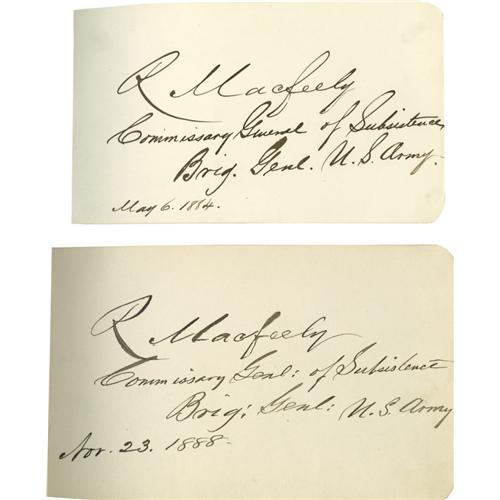 R Macfeely
Commissary General of Subsistence
Brig. Genl. U.S. Army.
May 6. 1884.
R Macfeely
Commissary Genl: of Subsistence
Brig: Genl: U.S. Army
Nov. 23. 1888-